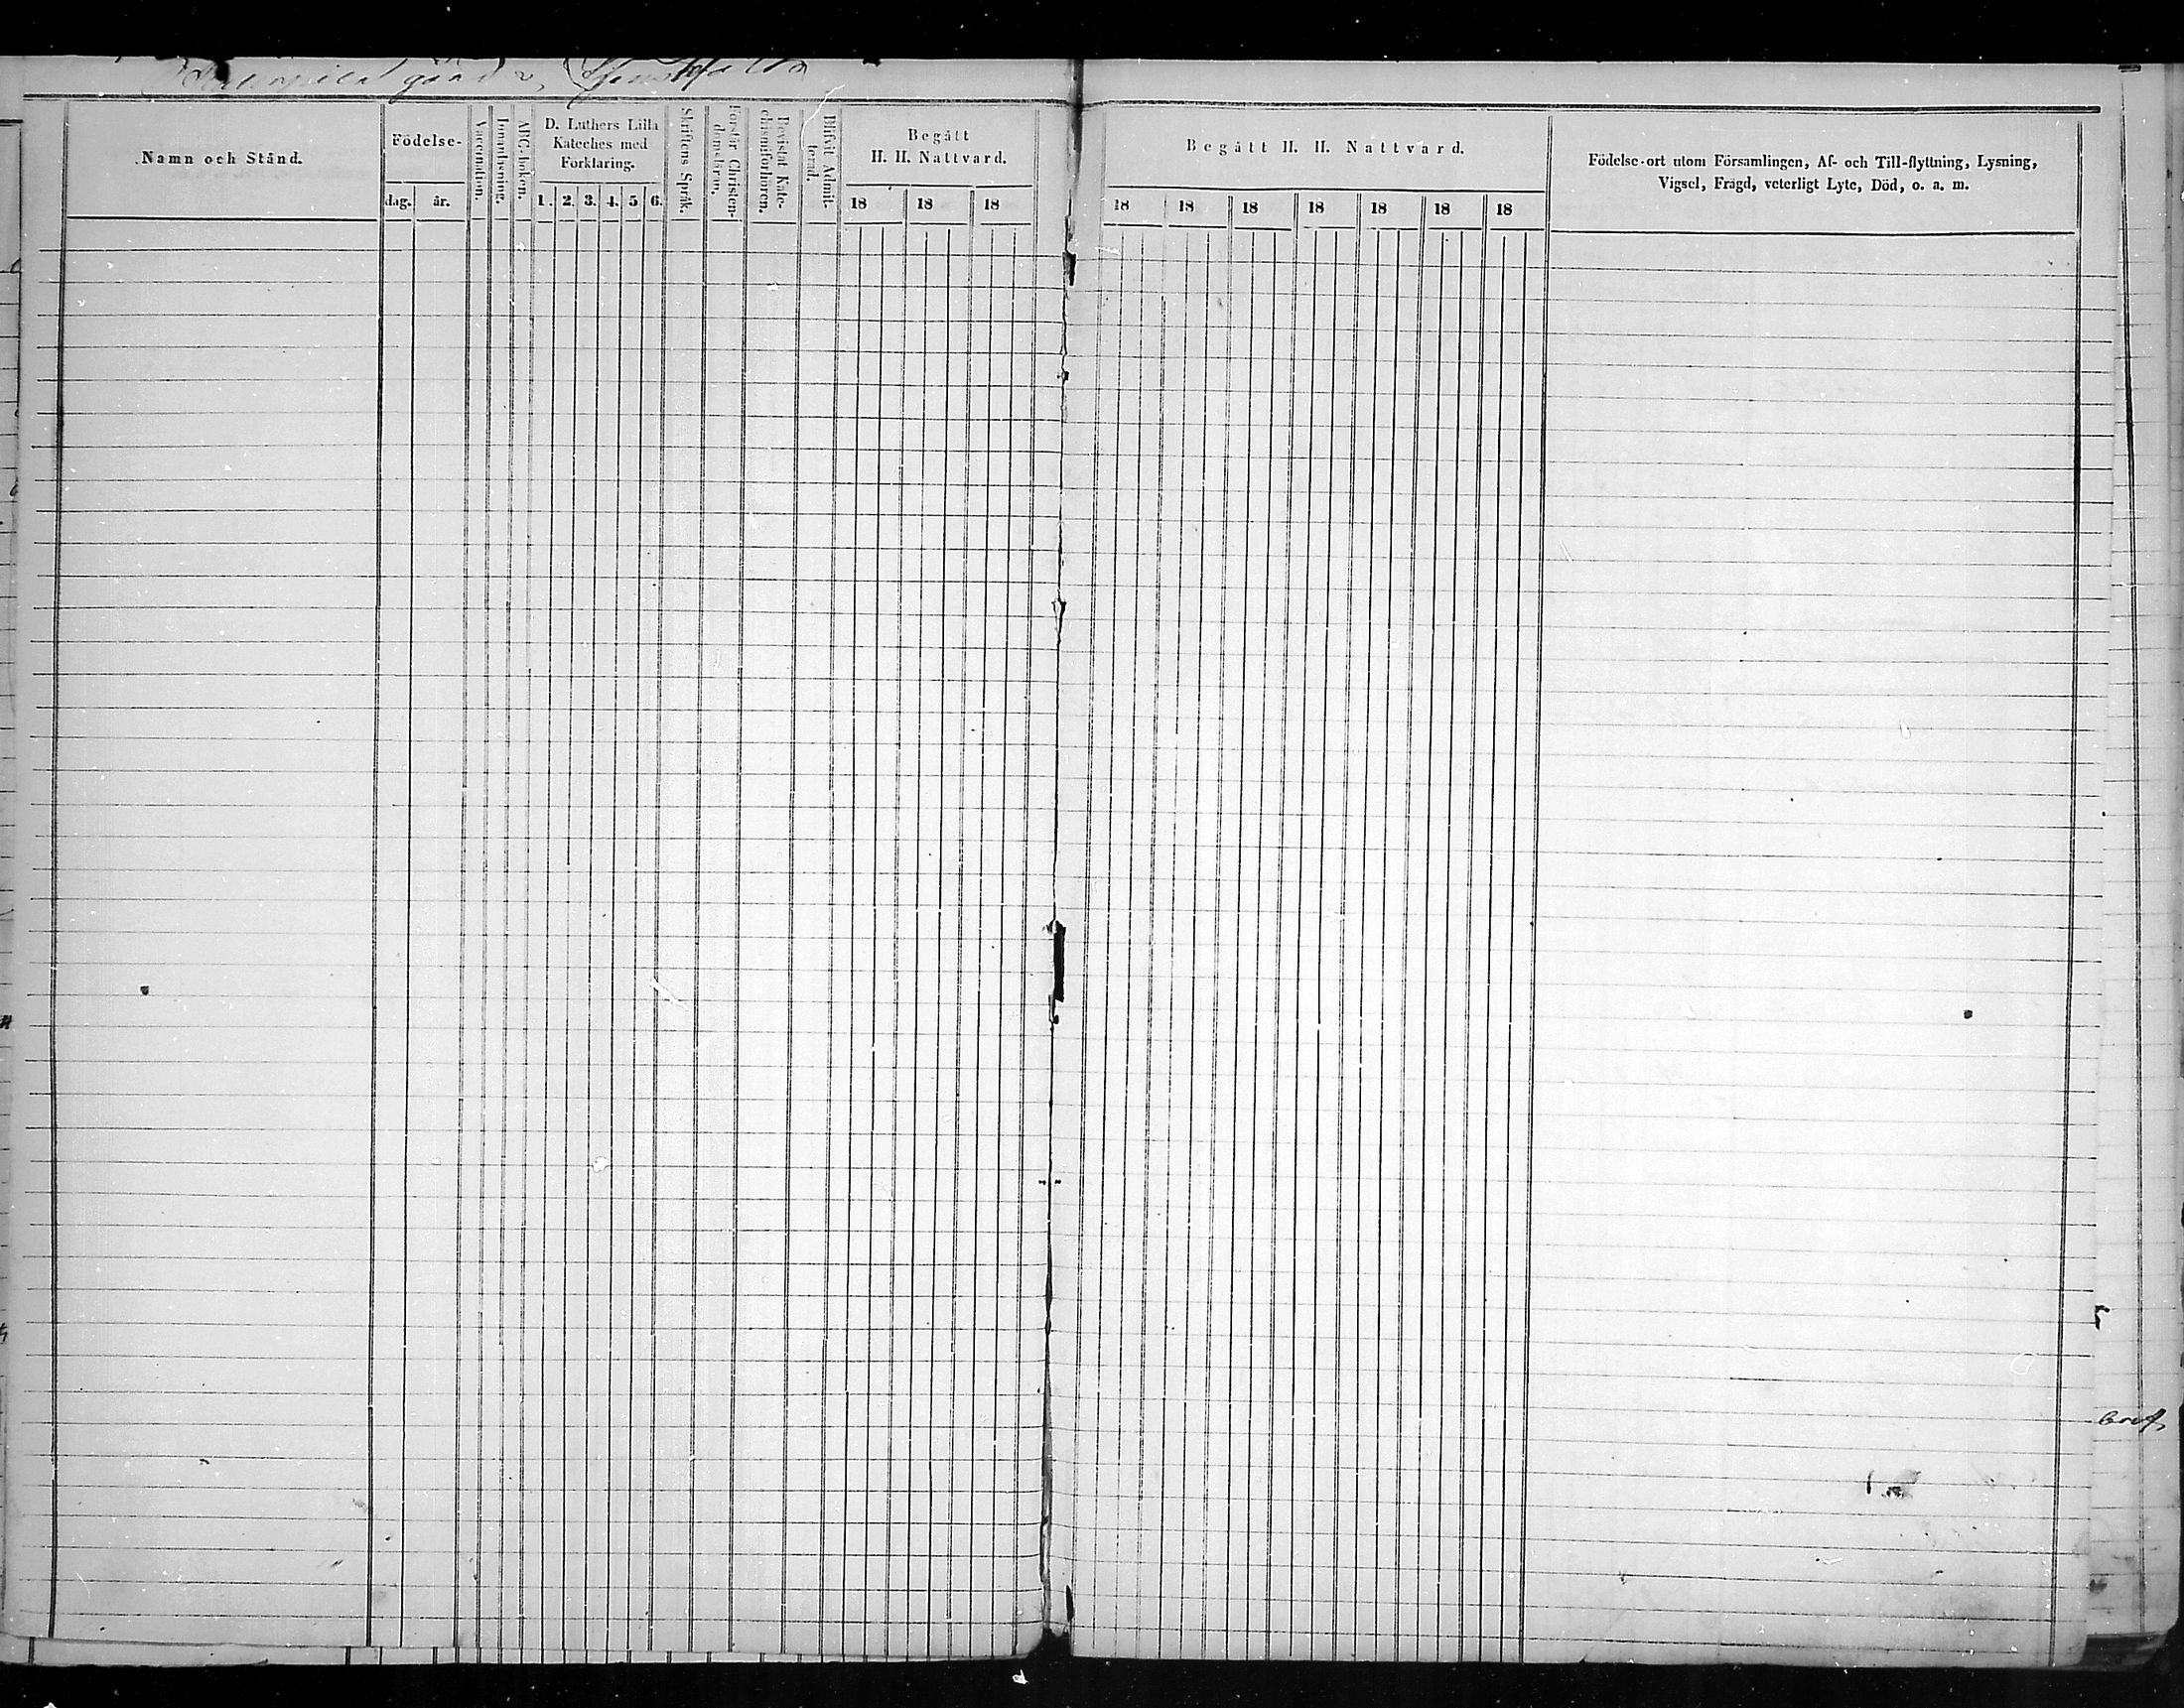 Namn och Stånd.
Födelse-
dag. år.
Vaccination.
Innanläsning.
ABC-boken.
D. Luthers Lilla
Kateches med
Forklaring.
1. 2. 3. 4. 5 6.
Skriftens Språk.
Förstår Christen-
domsläran.
Bevistat Kate-
chismiförhören.
Blifvit Admit-
terad.
Begått
H. H. Nattvard.
18 18 18
Begått H. H. Nattvard.
18 18 18 18 18 18 18
Födelse-ort utom Församlingen, Af- och Till-flyttning, Lysning,
Vigsel, Frägd, veterligt Lyte, Död, o. a. m.